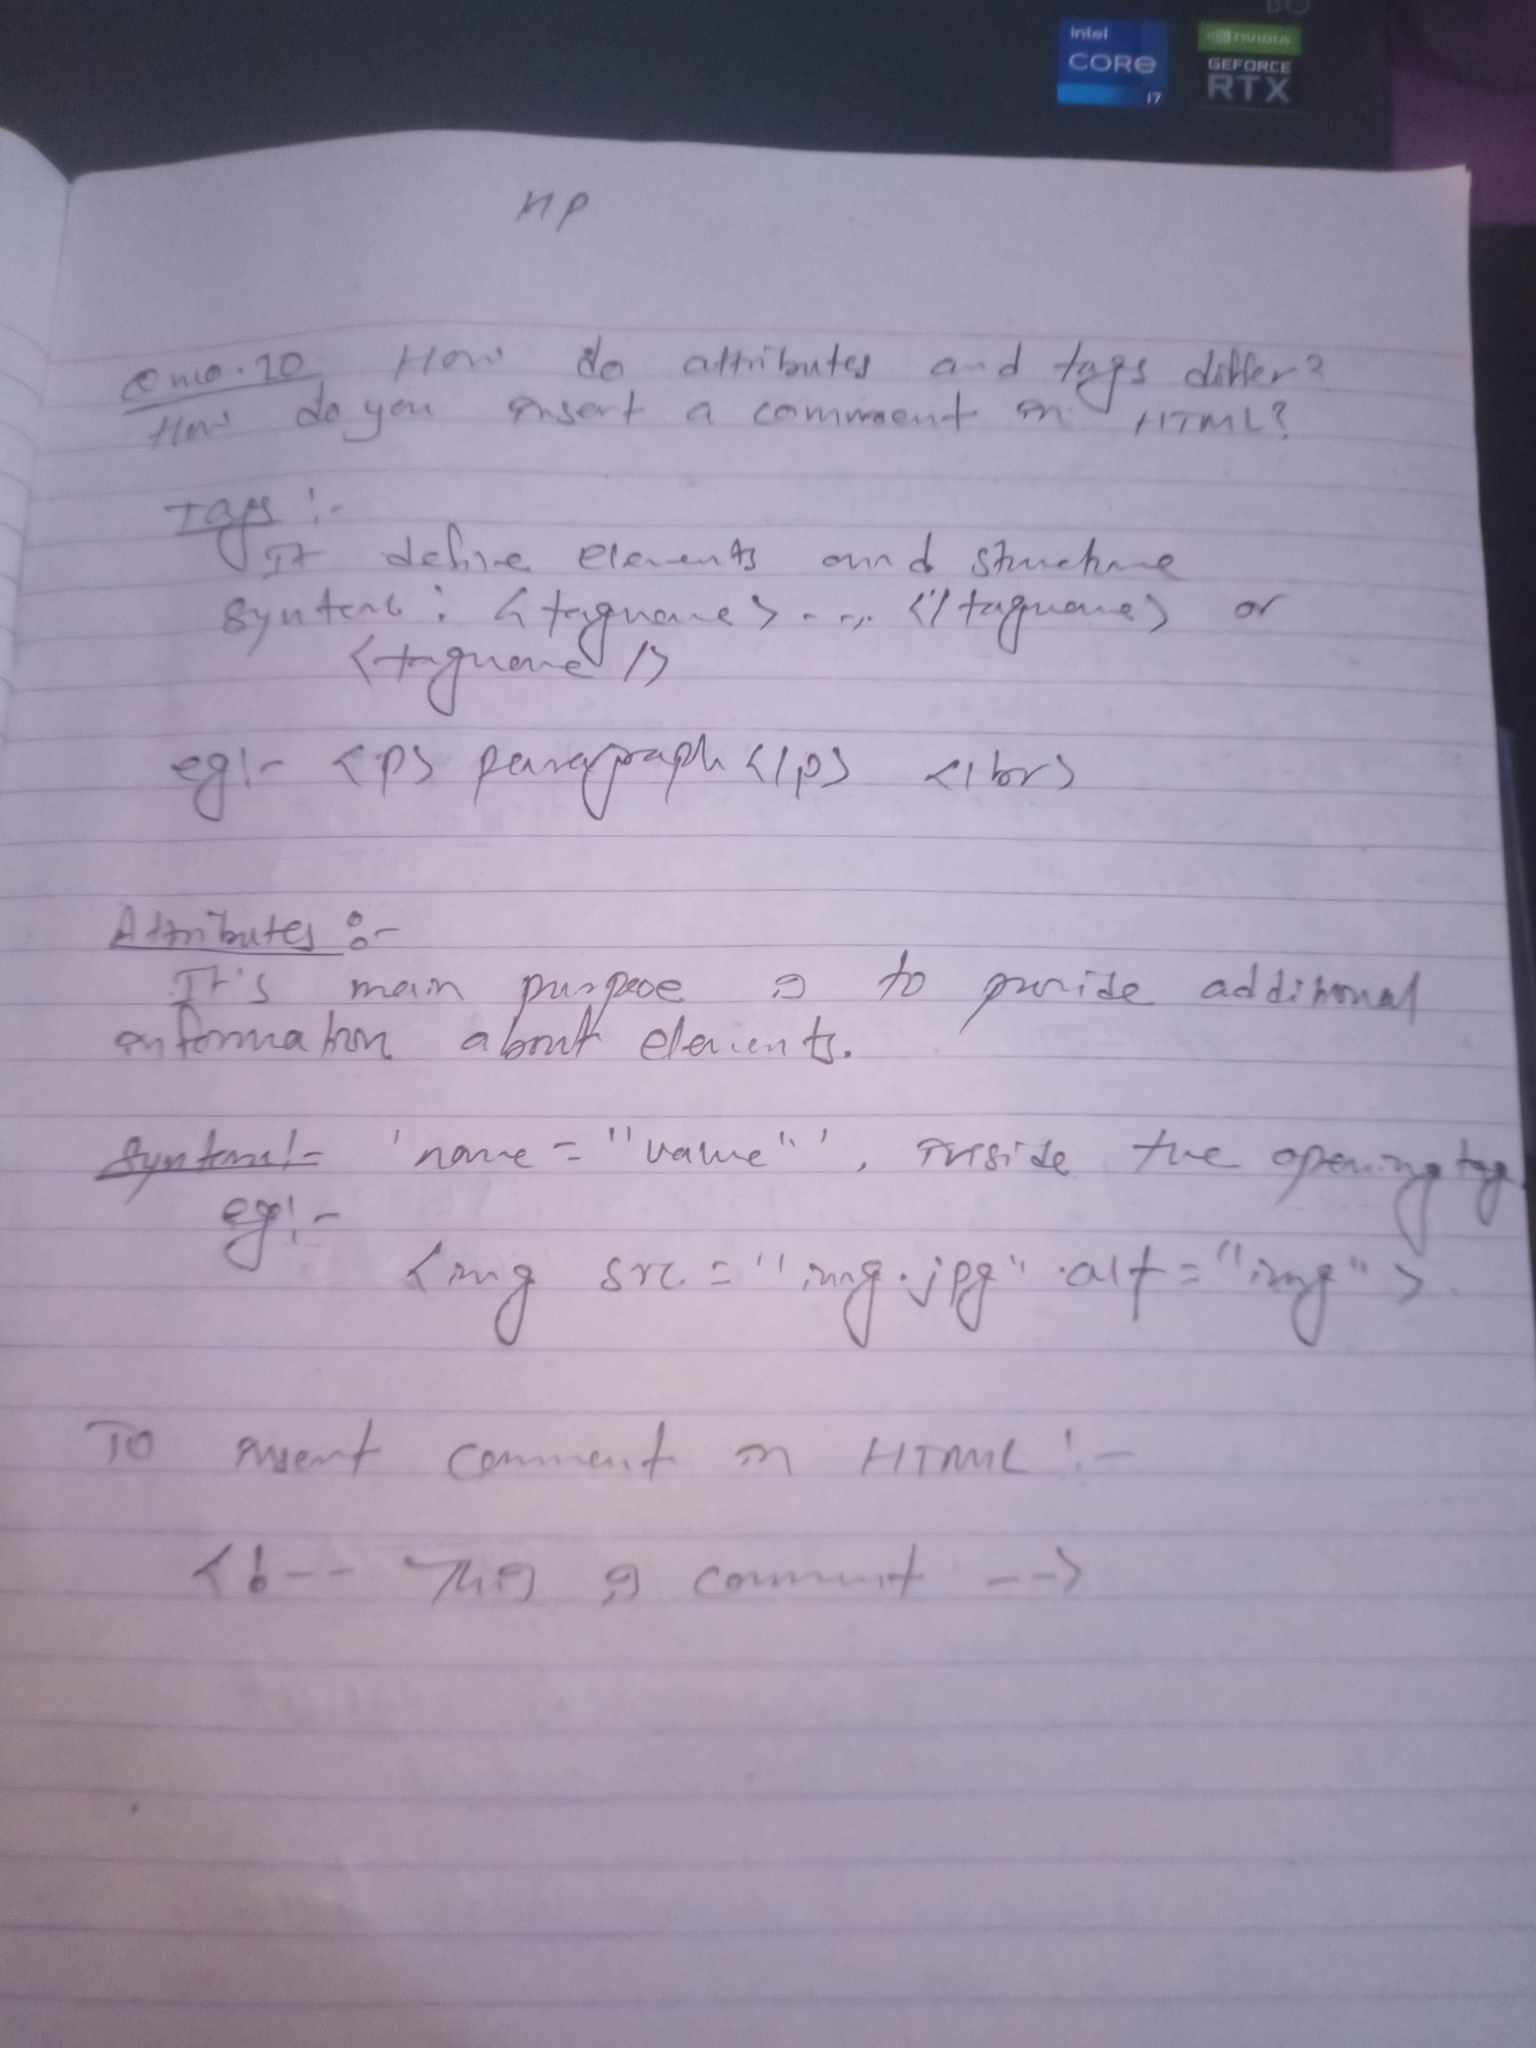 intel
CORE
i7
NVIDIA
GEFORCE
RTX
Q no. 10 How do attributes and tags differ?
How do you insert a comment in HTML?
Tags :-
It define elements and structure
Syntax : <tagname> .... </tagname> or
<tagname />
eg:- <p> paragraph </p> </br>
Attributes :-
It's main purpose is to provide additional
information about elements.
Syntax:- 'name = "value"', inside the opening tag
eg:-
<img src = "img.jpg" alt = "img">
To insert comment in HTML :-
<!-- This is comment -->